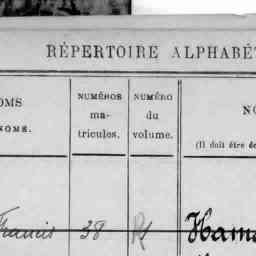 RÉPERTOIRE ALPHABÉT
OMS
NOMS.
NUMÉROS
ma-
tricules.
NUMÉRO
du
volume.
NO
(Il doit être é
Francis 38 R1 Hama